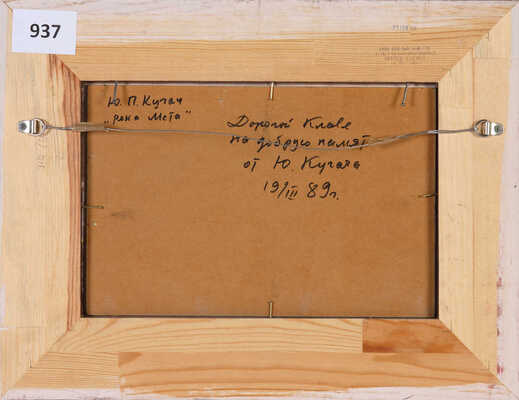 937
Ю. П. Кугач
"река Мста"
Дорогой Клаве
на добрую память
от Ю. Кугача
19/III 89г.